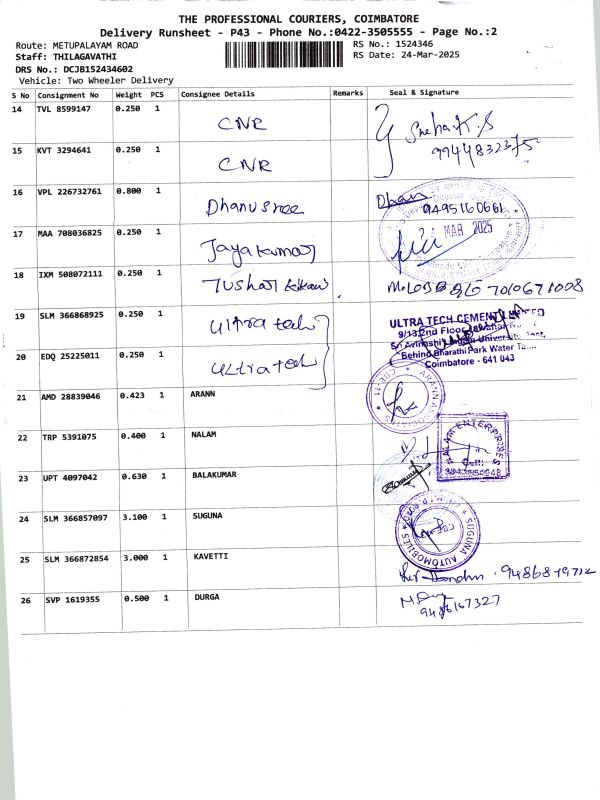 THE PROFESSIONAL COURIERS, COIMBATORE
Delivery Runsheet - P43 - Phone No.:0422-3505555 - Page No.:2
Route: METUPALAYAM ROAD
RS No.: 1524346
Staff: THILAGAVATHI
RS Date: 24-Mar-2025
DRS No.: DCJB152434602
Vehicle: Two Wheeler Delivery
S No Consignment No Weight PCS Consignee Details Remarks Seal & Signature
14 TVL 8599147 0.250 1 CNR Sneha K.S
9944832375
15 KVT 3294641 0.250 1 CNR
16 VPL 226732761 0.800 1 Dhanusree Dhan
9495160661
17 MAA 708036825 0.250 1 Jayakumar MAR 2025
18 IXM 508072111 0.250 1 Tushar 7010671008
19 SLM 366868925 0.250 1 Ultra tech ULTRA TECH CEMENT LIMITED
9/13, 2nd Floor
20 EDQ 25225011 0.250 1 Ultra tech
Behind Bharathi Park Water
Coimbatore - 641 043
21 AMD 28839046 0.423 1 ARANN
ARANN ASSOCIATES
22 TRP 5391075 0.400 1 NALAM
NALAM ENTERPRISES
23 UPT 4097042 0.630 1 BALAKUMAR
24 SLM 366857097 3.100 1 SUGUNA
SUGUNA AUTOMOBILES
25 SLM 366872854 3.000 1 KAVETTI
26 SVP 1619355 0.500 1 DURGA
9486167327